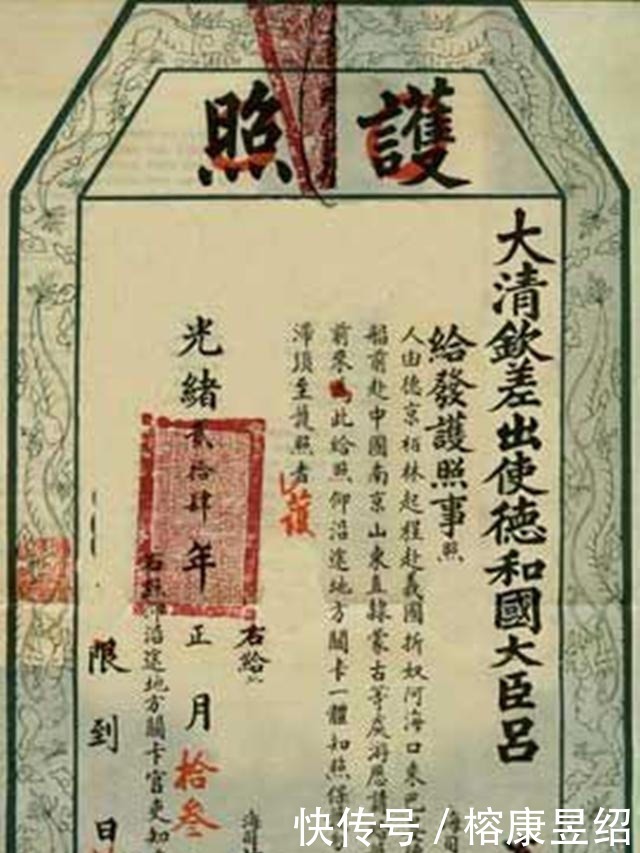 護照
大清欽差出使德和國大臣呂
給發護照事照
人由德京栢林起程赴義國折奴阿海口乘
船前赴中國南京山東直隸蒙古等處游歷請
前來為此給照仰沿途地方關卡一體知照
滯須至護照者
護
右給
光緒貳拾肆年正月拾叁
仰沿途地方關卡官吏知
限到日
快传号/榕康昱绍